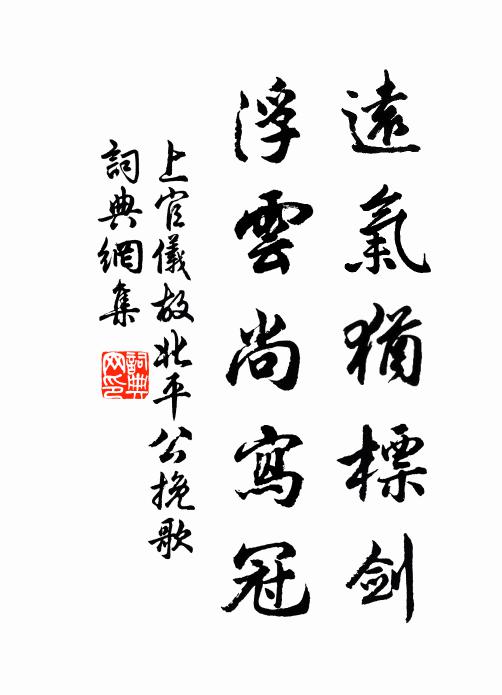 遠氣猶標劍
浮雲尚寫冠
上官儀故北平公挽歌
詞典網集
詞典
网印